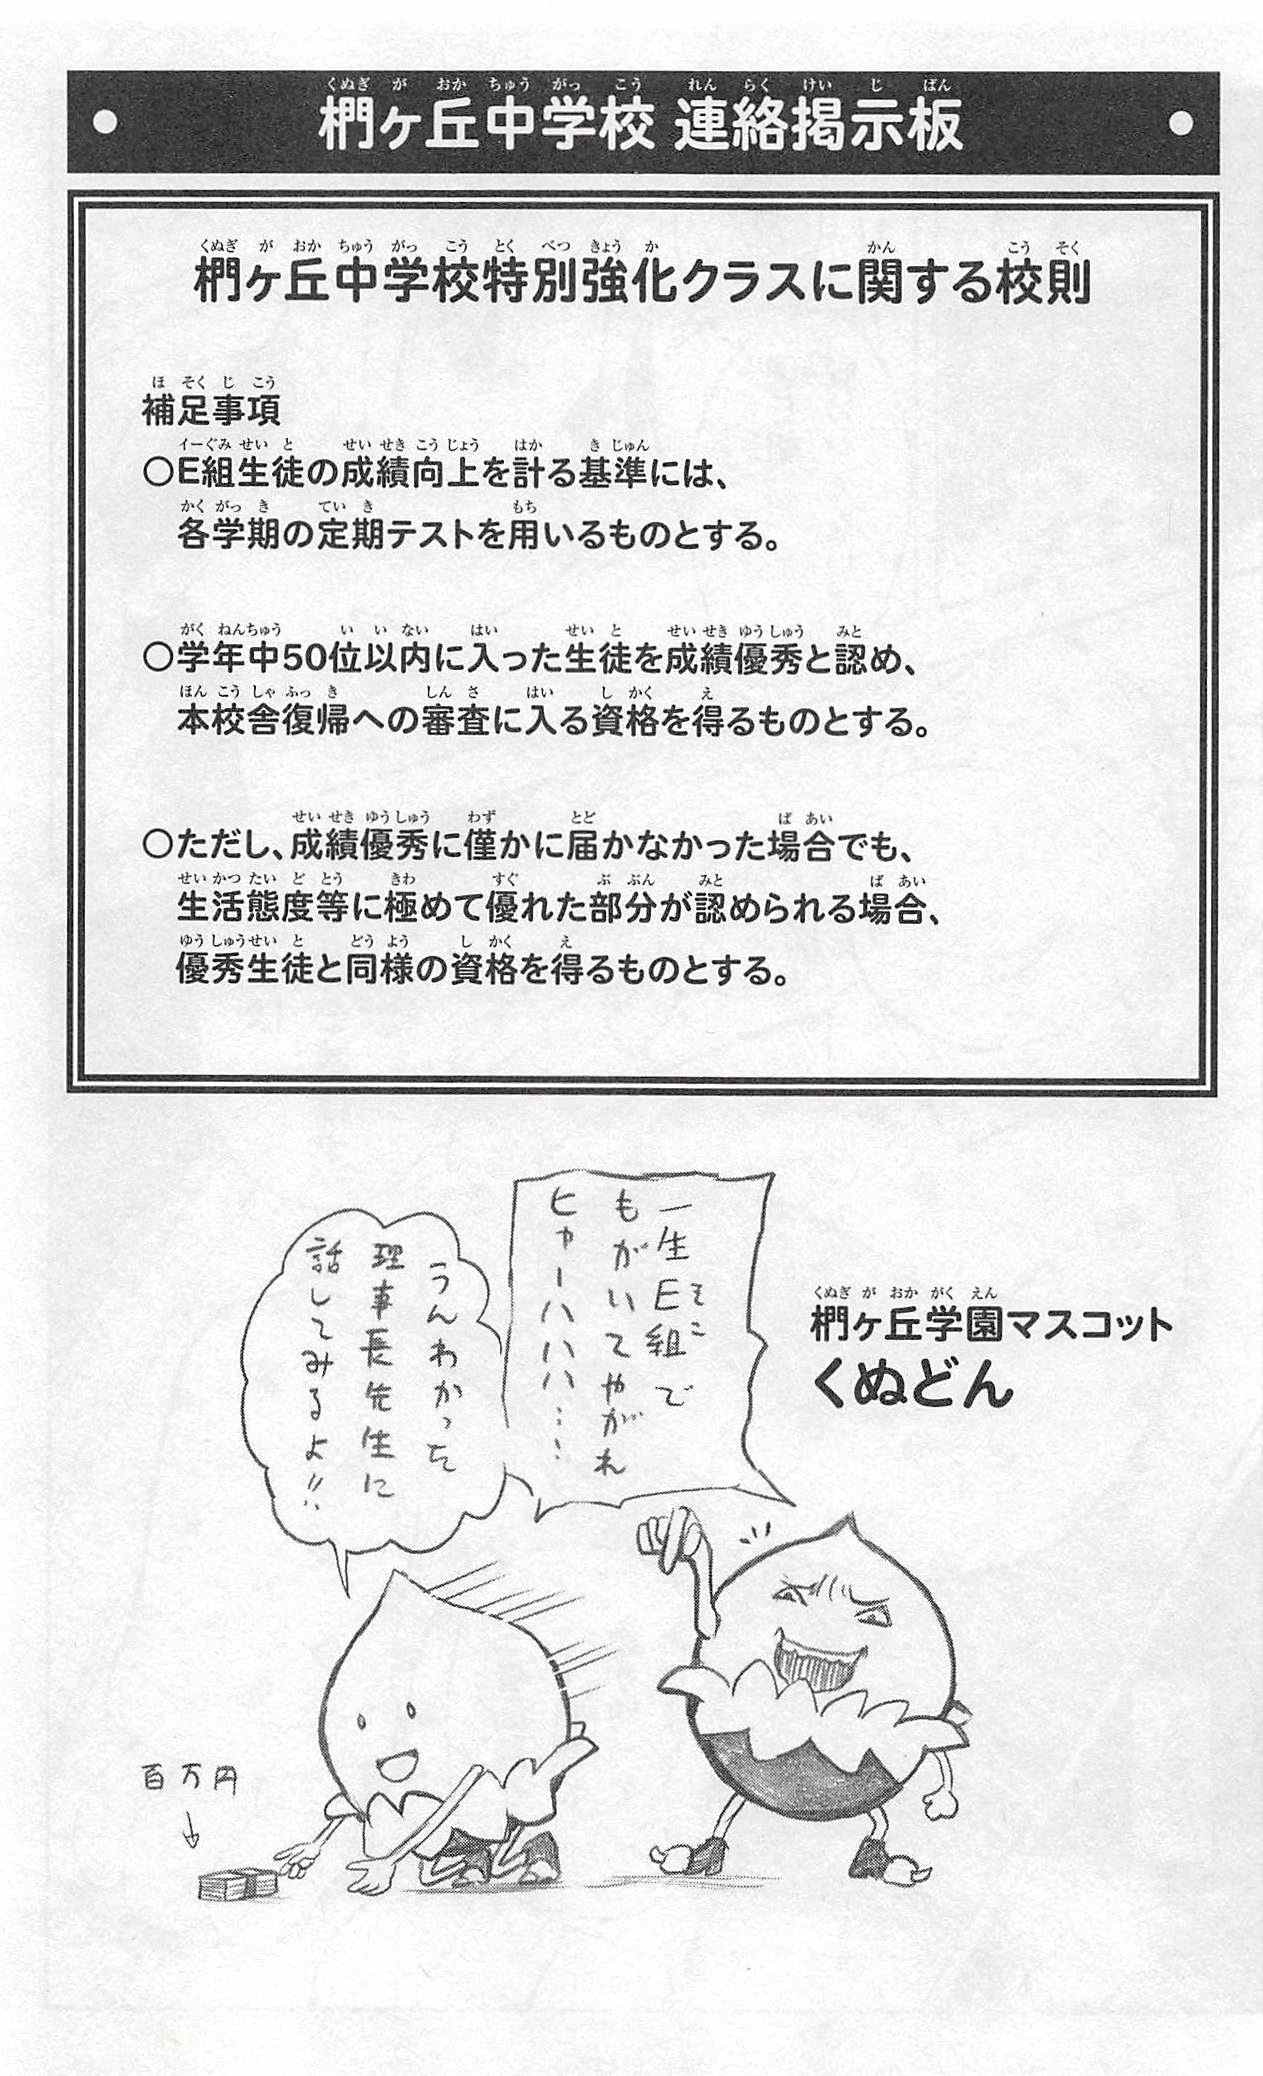 椚ヶ丘中学校 連絡掲示板
椚ヶ丘中学校特別強化クラスに関する校則
補足事項
○E組生徒の成績向上を計る基準には、
各学期の定期テストを用いるものとする。
○学年中50位以内に入った生徒を成績優秀と認め、
本校舎復帰への審査に入る資格を得るものとする。
○ただし、成績優秀に僅かに届かなかった場合でも、
生活態度等に極めて優れた部分が認められる場合、
優秀生徒と同様の資格を得るものとする。
椚ヶ丘学園マスコット
くぬどん
一生E組で
もがいてやがれ
ヒャーハハハ……
うんわかった
理事長先生に
話してみるよ!!
百万円